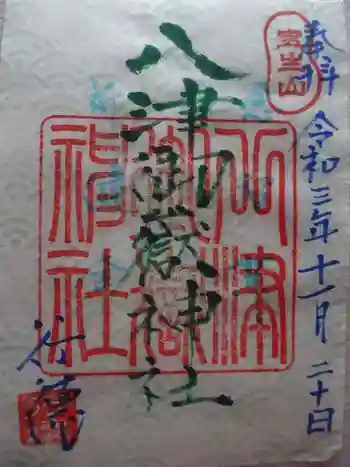 奉拝 令和三年十一月二十日
室生山
八津御嶽神社
八津御嶽神社
行徳